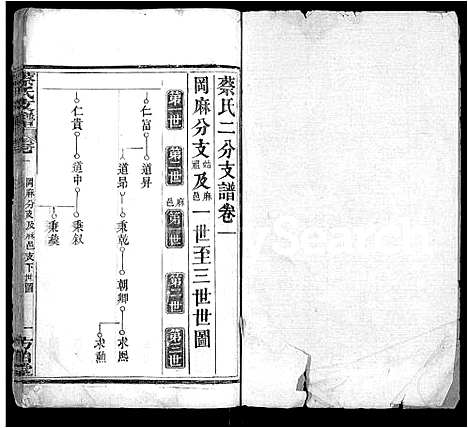 蔡氏二分支譜卷一
岡麻分支始祖及麻邑一世至三世世圖
第一世 第二世 麻邑第一世 第二世 第三世
仁富 道昇
道昂 秉乾 朝卿 求熙
求勳
仁貴 道中 秉叙
秉彝
蔡氏支譜 卷一
岡麻分支及麻邑支下世圖
一